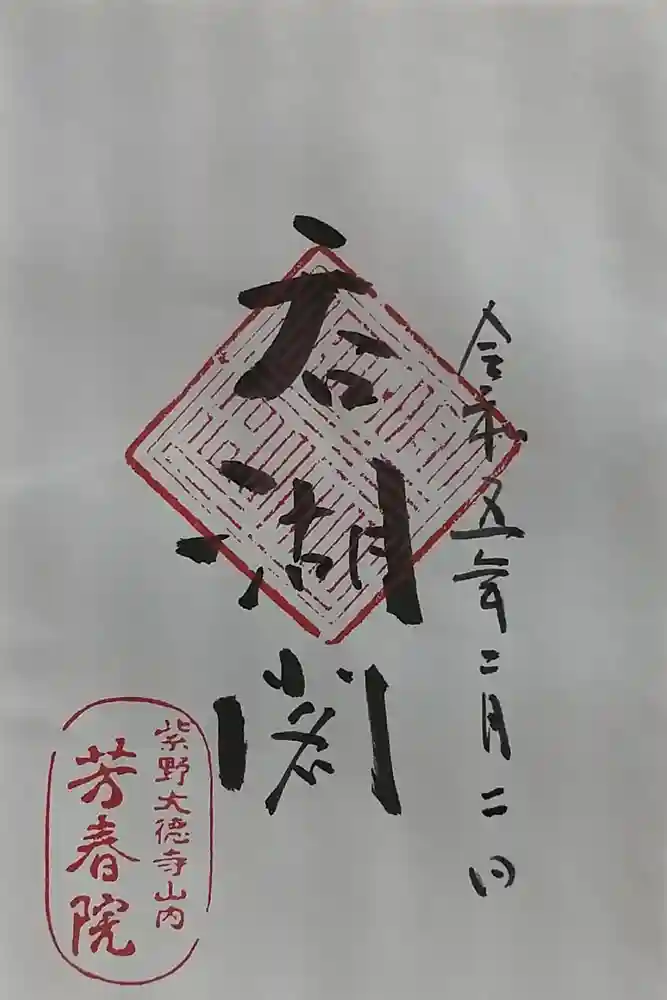 令和五年二月二日
呑湖閣
紫野大徳寺山内
芳春院